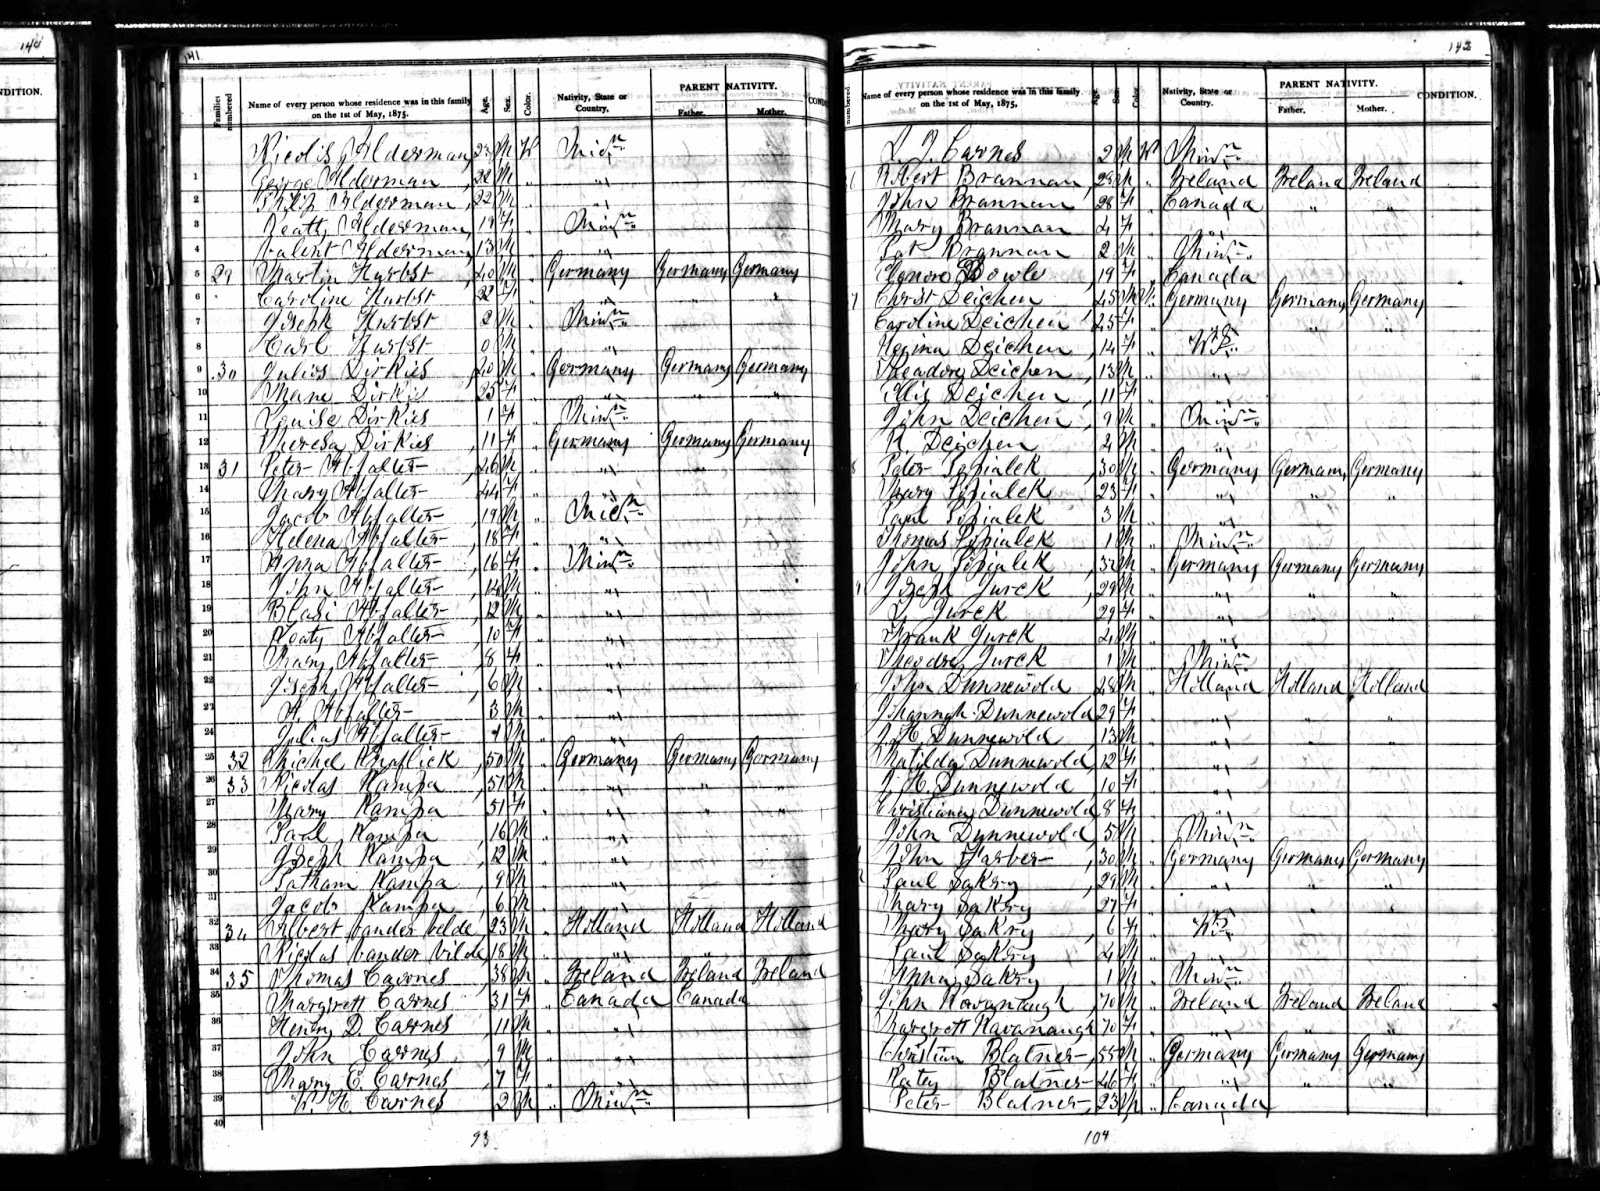 140
NDITION.
141
Families numbered
Name of every person whose residence was in this family on the 1st of May, 1875.
Age. Sex. Color.
Nativity, State or Country.
PARENT NATIVITY.
Father. Mother.
COND
Nicolis Alderman 23 M W
1 George Alderman 22 M "
2 Philip Alderman, 22 M "
3 Alderman, 19 F " Minn
4 Valent Alderman, 13 M " "
5 29 Martin Hurbst, 40 M " Germany Germany Germany
6 Caroline Hurbst 32 F " " " "
7 Joseph Hurbst 2 M " Minn
8 Carl Hurbst 0 M " "
9 30 Julius Dirkies, 40 M " Germany Germany Germany
10 Dirkies 25 F " " " "
11 Louise Dirkies, 1 F " Minn
12 Theresa Dirkies, 11 F " Germany Germany Germany
13 31 Peter Abfalter, 46 M " " "
14 Mary Abfalter 44 F " "
15 Jacob Abfalter, 19 M "
16 Helena Abfalter, 18 F " "
17 Anna Abfalter, 16 F " Minn
18 John Abfalter, 14 M " "
19 Blasi Abfalter, 12 M " "
20 Abfalter, 10 F " "
21 Mary Abfalter, 8 F " "
22 Joseph Abfalter, 6 M " "
23 A. Abfalter 3 M " "
24 Julius Abfalter M " "
25 32 Michel 50 M " Germany Germany Germany
26 33 Nicolas Kampa, 51 M " " " "
27 Mary Kampa, 51 F " " " "
28 Paul Kampa, 16 M " "
29 Joseph Kampa, 12 M " "
30 Kampa, 9 M " "
31 Jacob Kampa, 6 M " "
32 34 Albert Vander Velde, 23 M " Holland Holland Holland
33 Nicolas Vander Vilde, 18 M " "
34 35 Thomas Carnes, 38 M " Ireland Ireland Ireland
35 Margrett Carnes, 31 F " Canada Canada
36 Henry D. Carnes, 11 M " "
37 John Carnes, 9 M " "
38 Mary E. Carnes, 7 F " "
39 H. Carnes 2 M " Minn
40
93
142
numbered.
Name of every person whose residence was in this family on the 1st of May, 1875.
Age. Sex. Color
Nativity, State or Country.
PARENT NATIVITY.
Father. Mother.
CONDITION.
Carnes 2 M W Minn
Robert Brannan, 28 M " Ireland Ireland Ireland
Brannan 28 F " Canada " "
Mary Brannan 4 F " "
Pat Brannan 2 M " Minn
Elenore Bowle, 19 F " Canada
Christ Deichen, 45 M W. Germany Germany Germany
Caroline Deichen, 25 F " " " "
Deichen, 14 F "
Theadore Deichen, 13 M " "
Deichen, 11 F " "
John Deichen, 9 M " Minn
Deichen, 2 M " "
Peter 30 M " Germany Germany Germany
Mary 23 F " " " "
Paul 3 M " "
Thomas 1 M " Minn
John 32 M " Germany Germany Germany
Joseph Jurck, 29 M " " " "
Jurck 29 F " "
Frank Jurck 2 M " "
Theodre Jurck 1 M " Minn
John Dunnewold, 28 M " Holland Holland Holland
Dunnewold 29 F " " " "
H. Dunnewold 13 M " "
Matilda Dunnewold, 12 F " "
H. Dunnewold, 10 F " "
Christiana Dunnewold 8 F " "
John Dunnewold, 5 M " Minn
John Farber, 30 M " Germany Germany Germany
Paul Sakry, 29 M " " " "
Mary Sakry 27 F " " "
Mary Sakry, 6 F "
Paul Sakry 4 M " "
Anna Sakry 1 M " Minn
John Kavanaugh, 70 M " Ireland Ireland Ireland
Margrett Kavanaugh 70 F " " " "
Christian Blatner, 55 M " Germany Germany Germany
Katey Blatner 46 F " " " "
Peter Blatner, 23 M " Canada
104